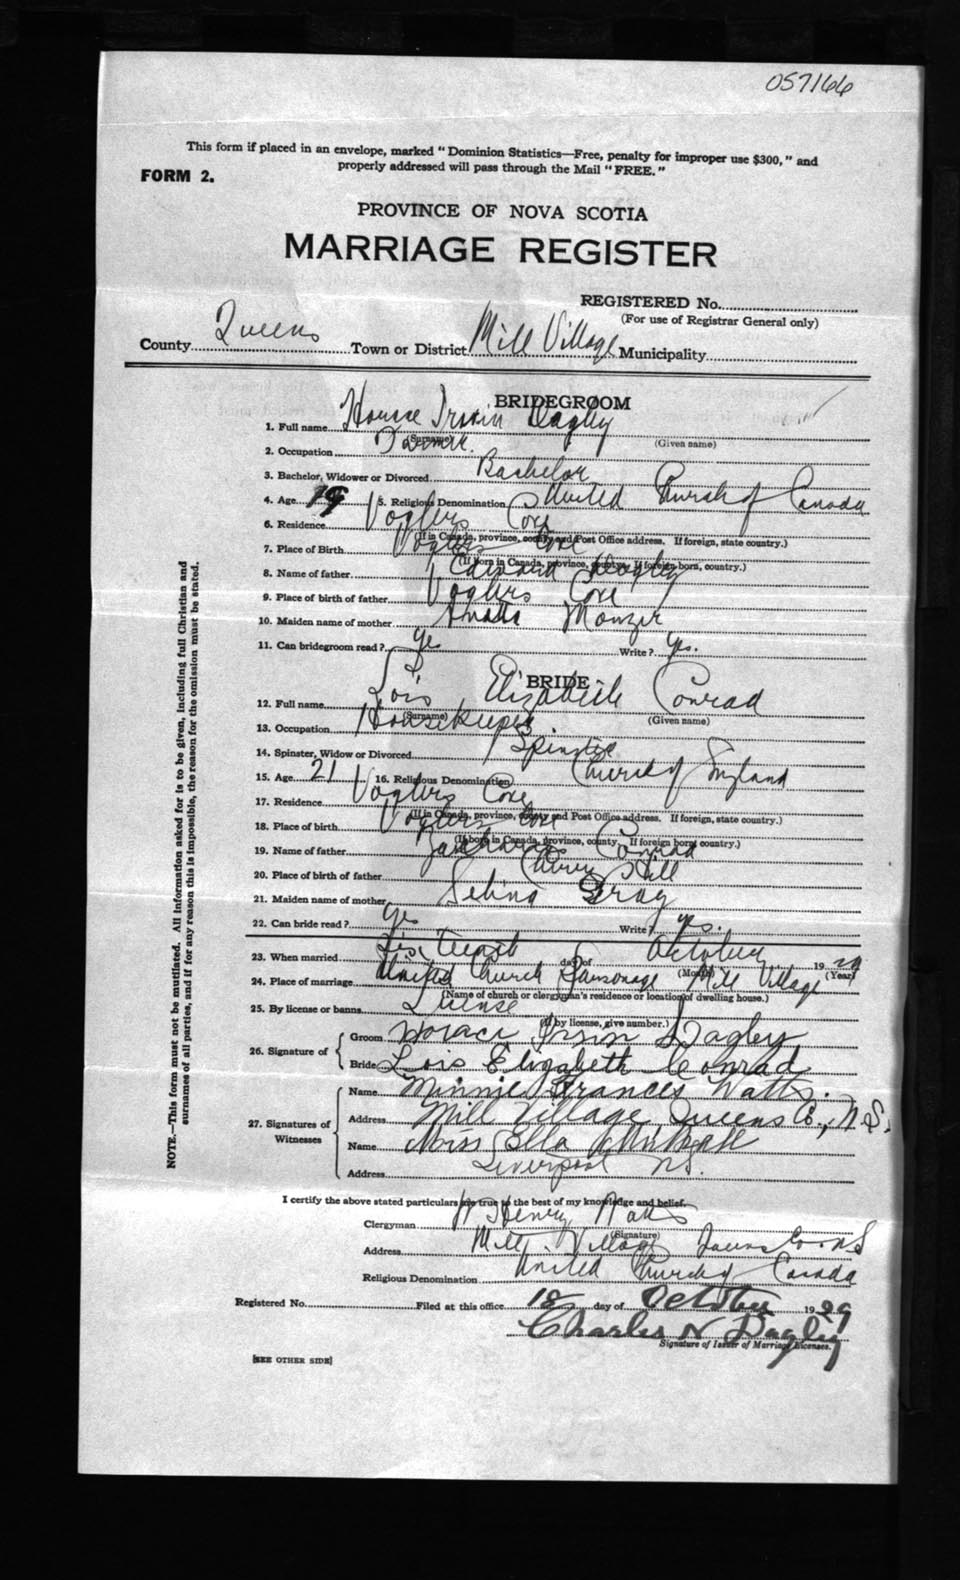 057166
This form if placed in an envelope, marked "Dominion Statistics—Free, penalty for improper use $300," and
properly addressed will pass through the Mail "FREE."
FORM 2.
PROVINCE OF NOVA SCOTIA
MARRIAGE REGISTER
REGISTERED No.
(For use of Registrar General only)
County Queens Town or District Mill Village Municipality
BRIDEGROOM
1. Full name Horace Irvin Dagley
(Surname) (Given name)
2. Occupation
3. Bachelor, Widower or Divorced Bachelor
4. Age 19 5. Religious Denomination United Church of Canada
6. Residence Voglers Cove
(If in Canada, province, county and Post Office address. If foreign, state country.)
7. Place of Birth Voglers Cove
(If born in Canada, province, country. If foreign born, country.)
8. Name of father Dagley
9. Place of birth of father Voglers Cove
10. Maiden name of mother
11. Can bridegroom read? Yes Write? Yes.
BRIDE
12. Full name Lois Elizabeth Conrad
(Surname) (Given name)
13. Occupation Housekeeper
14. Spinster, Widow or Divorced Spinster
15. Age 21 16. Religious Denomination Church of England
17. Residence Voglers Cove
(If in Canada, province, county and Post Office address. If foreign, state country.)
18. Place of birth Voglers Cove
(If born in Canada, province, county. If foreign born country.)
19. Name of father Conrad
20. Place of birth of father Cherry Hill
21. Maiden name of mother Selina
22. Can bride read? Yes Write? yes.
23. When married Sixteenth day of October 1929
(Month) (Year)
24. Place of marriage United Church Parsonage Mill Village
(Name of church or clergyman's residence or location of dwelling house.)
25. By license or banns License
(If by license, give number.)
26. Signature of
Groom Horace Irvin Dagley
Bride Lois Elizabeth Conrad
27. Signatures of Witnesses
Name Minnie Frances Watts.
Address Mill Village, Queens Co., N.S.
Name Miss Ella
Address Liverpool N.S.
I certify the above stated particulars are true to the best of my knowledge and belief.
Clergyman Henry Watts
(Signature)
Address Mill Village Queens Co. N.S
Religious Denomination United Church of Canada
Registered No. Filed at this office 18 day of October 1929
Charles N Dagley
Signature of Issuer of Marriage Licenses.
[SEE OTHER SIDE]
NOTE.—This form must not be mutilated. All information asked for is to be given, including full Christian and
surnames of all parties, and if for any reason this is impossible, the reason for the omission must be stated.